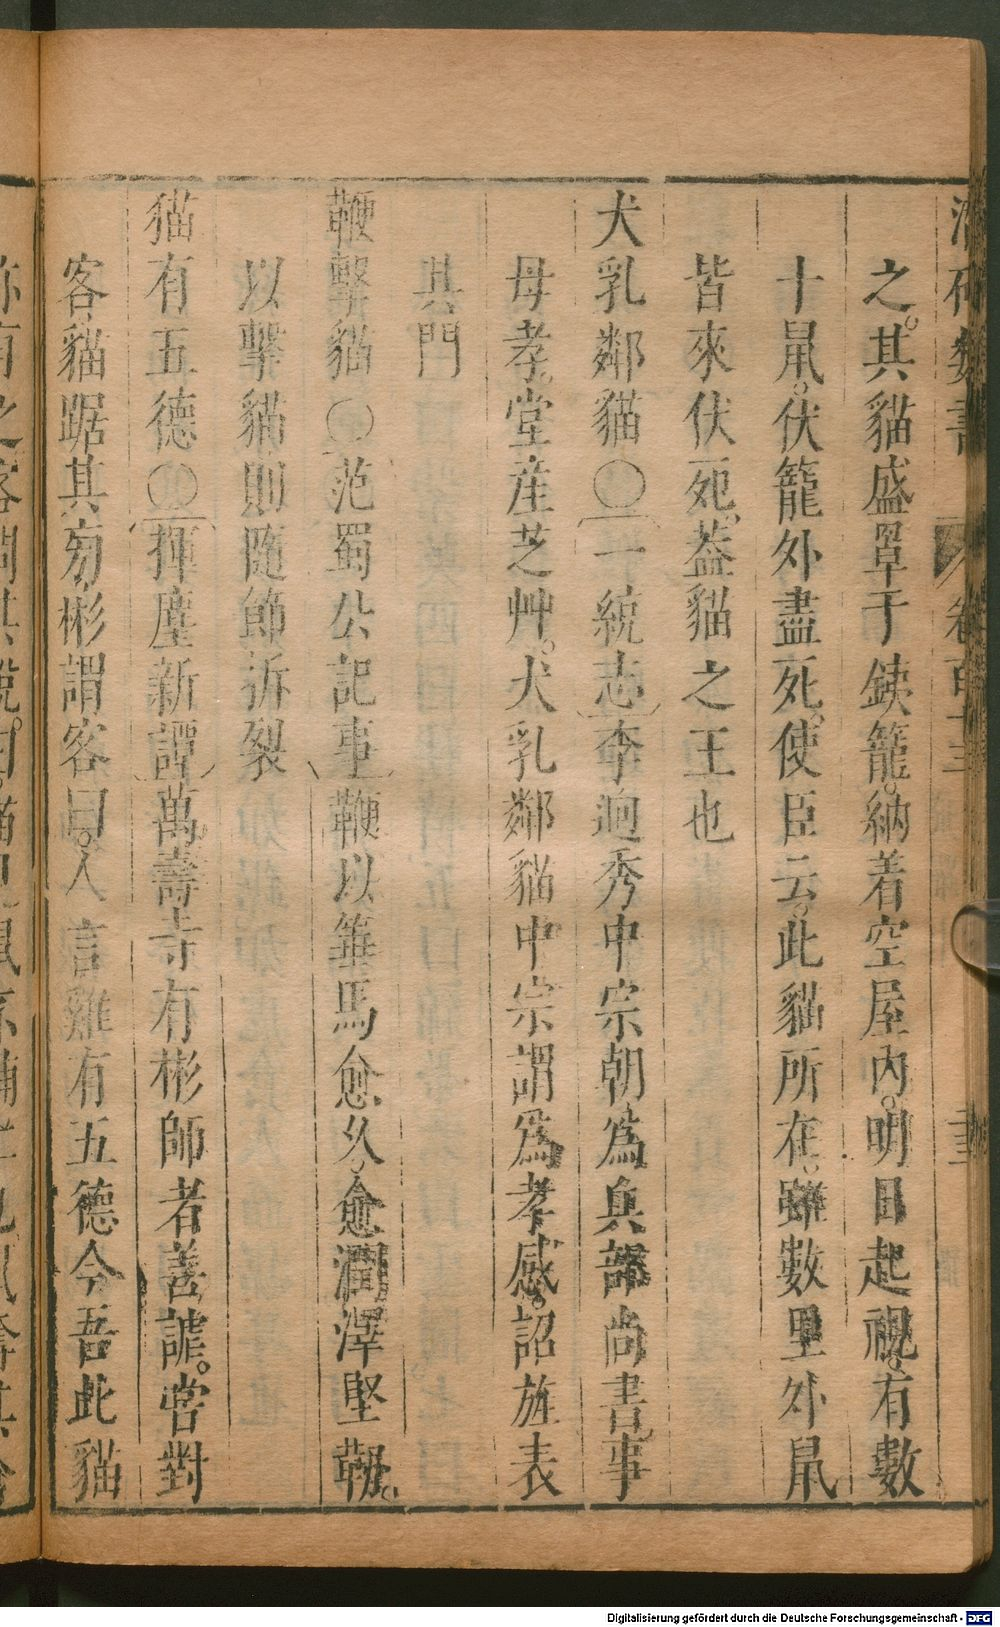 之其貓盛罩于鐵籠納着空屋內明日起視有數
十鼠伏籠外盡死使臣云此貓所在雖數里外鼠
皆來伏死蓋貓之王也
犬乳鄰貓○一統志李迥秀中宗朝為兵部尚書事
母孝堂產芝艸犬乳鄰貓中宗謂為孝感詔旌表
其門
鞭擊貓○范蜀公記事鞭以箠馬愈久愈潤澤堅韌
以擊貓則隨節拆裂
貓有五德○揮麈新譚萬壽寺有彬師者善謔嘗對
客貓踞其旁彬謂客曰人言雞有五德今吾此貓
Digitalisierung gefördert durch die Deutsche Forschungsgemeinschaft - DFG